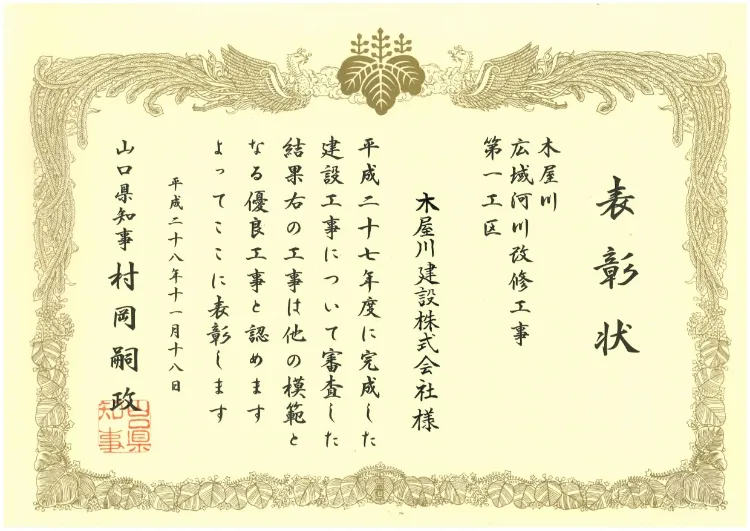 表彰状
木屋川
広域河川改修工事
第一工区
木屋川建設株式会社様
平成二十七年度に完成した
建設工事について審査した
結果右の工事は他の模範と
なる優良工事と認めます
よってここに表彰します
平成二十八年十一月十八日
山口県知事 村岡嗣政
山口県
知事